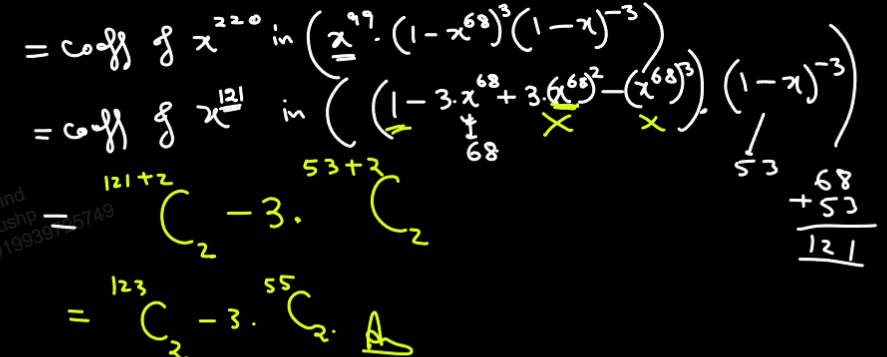 = coeff of x²²⁰ in (x⁹⁹. (1 - x⁶⁸)³ (1 - x)⁻³)
= coeff of x¹²¹ in ((1 - 3.x⁶⁸ + 3.(x⁶⁸)² - (x⁶⁸)³). (1 - x)⁻³)
68 × × 53
68
+ 53
121
= ¹²¹⁺²C₂ - 3. ⁵³⁺²C₂
= ¹²³C₂ - 3. ⁵⁵C₂. A